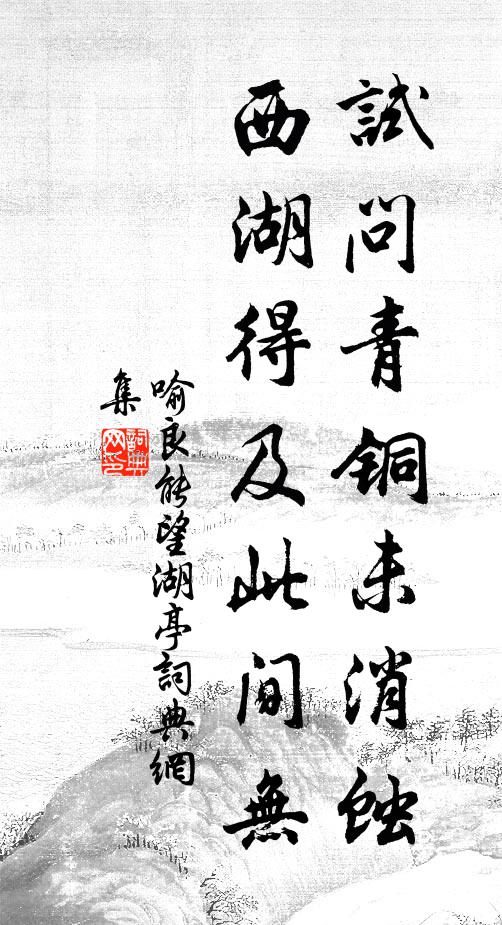 試問青銅未消蝕
西湖得及此間無
喻良能望湖亭詞典網
集
詞典网印